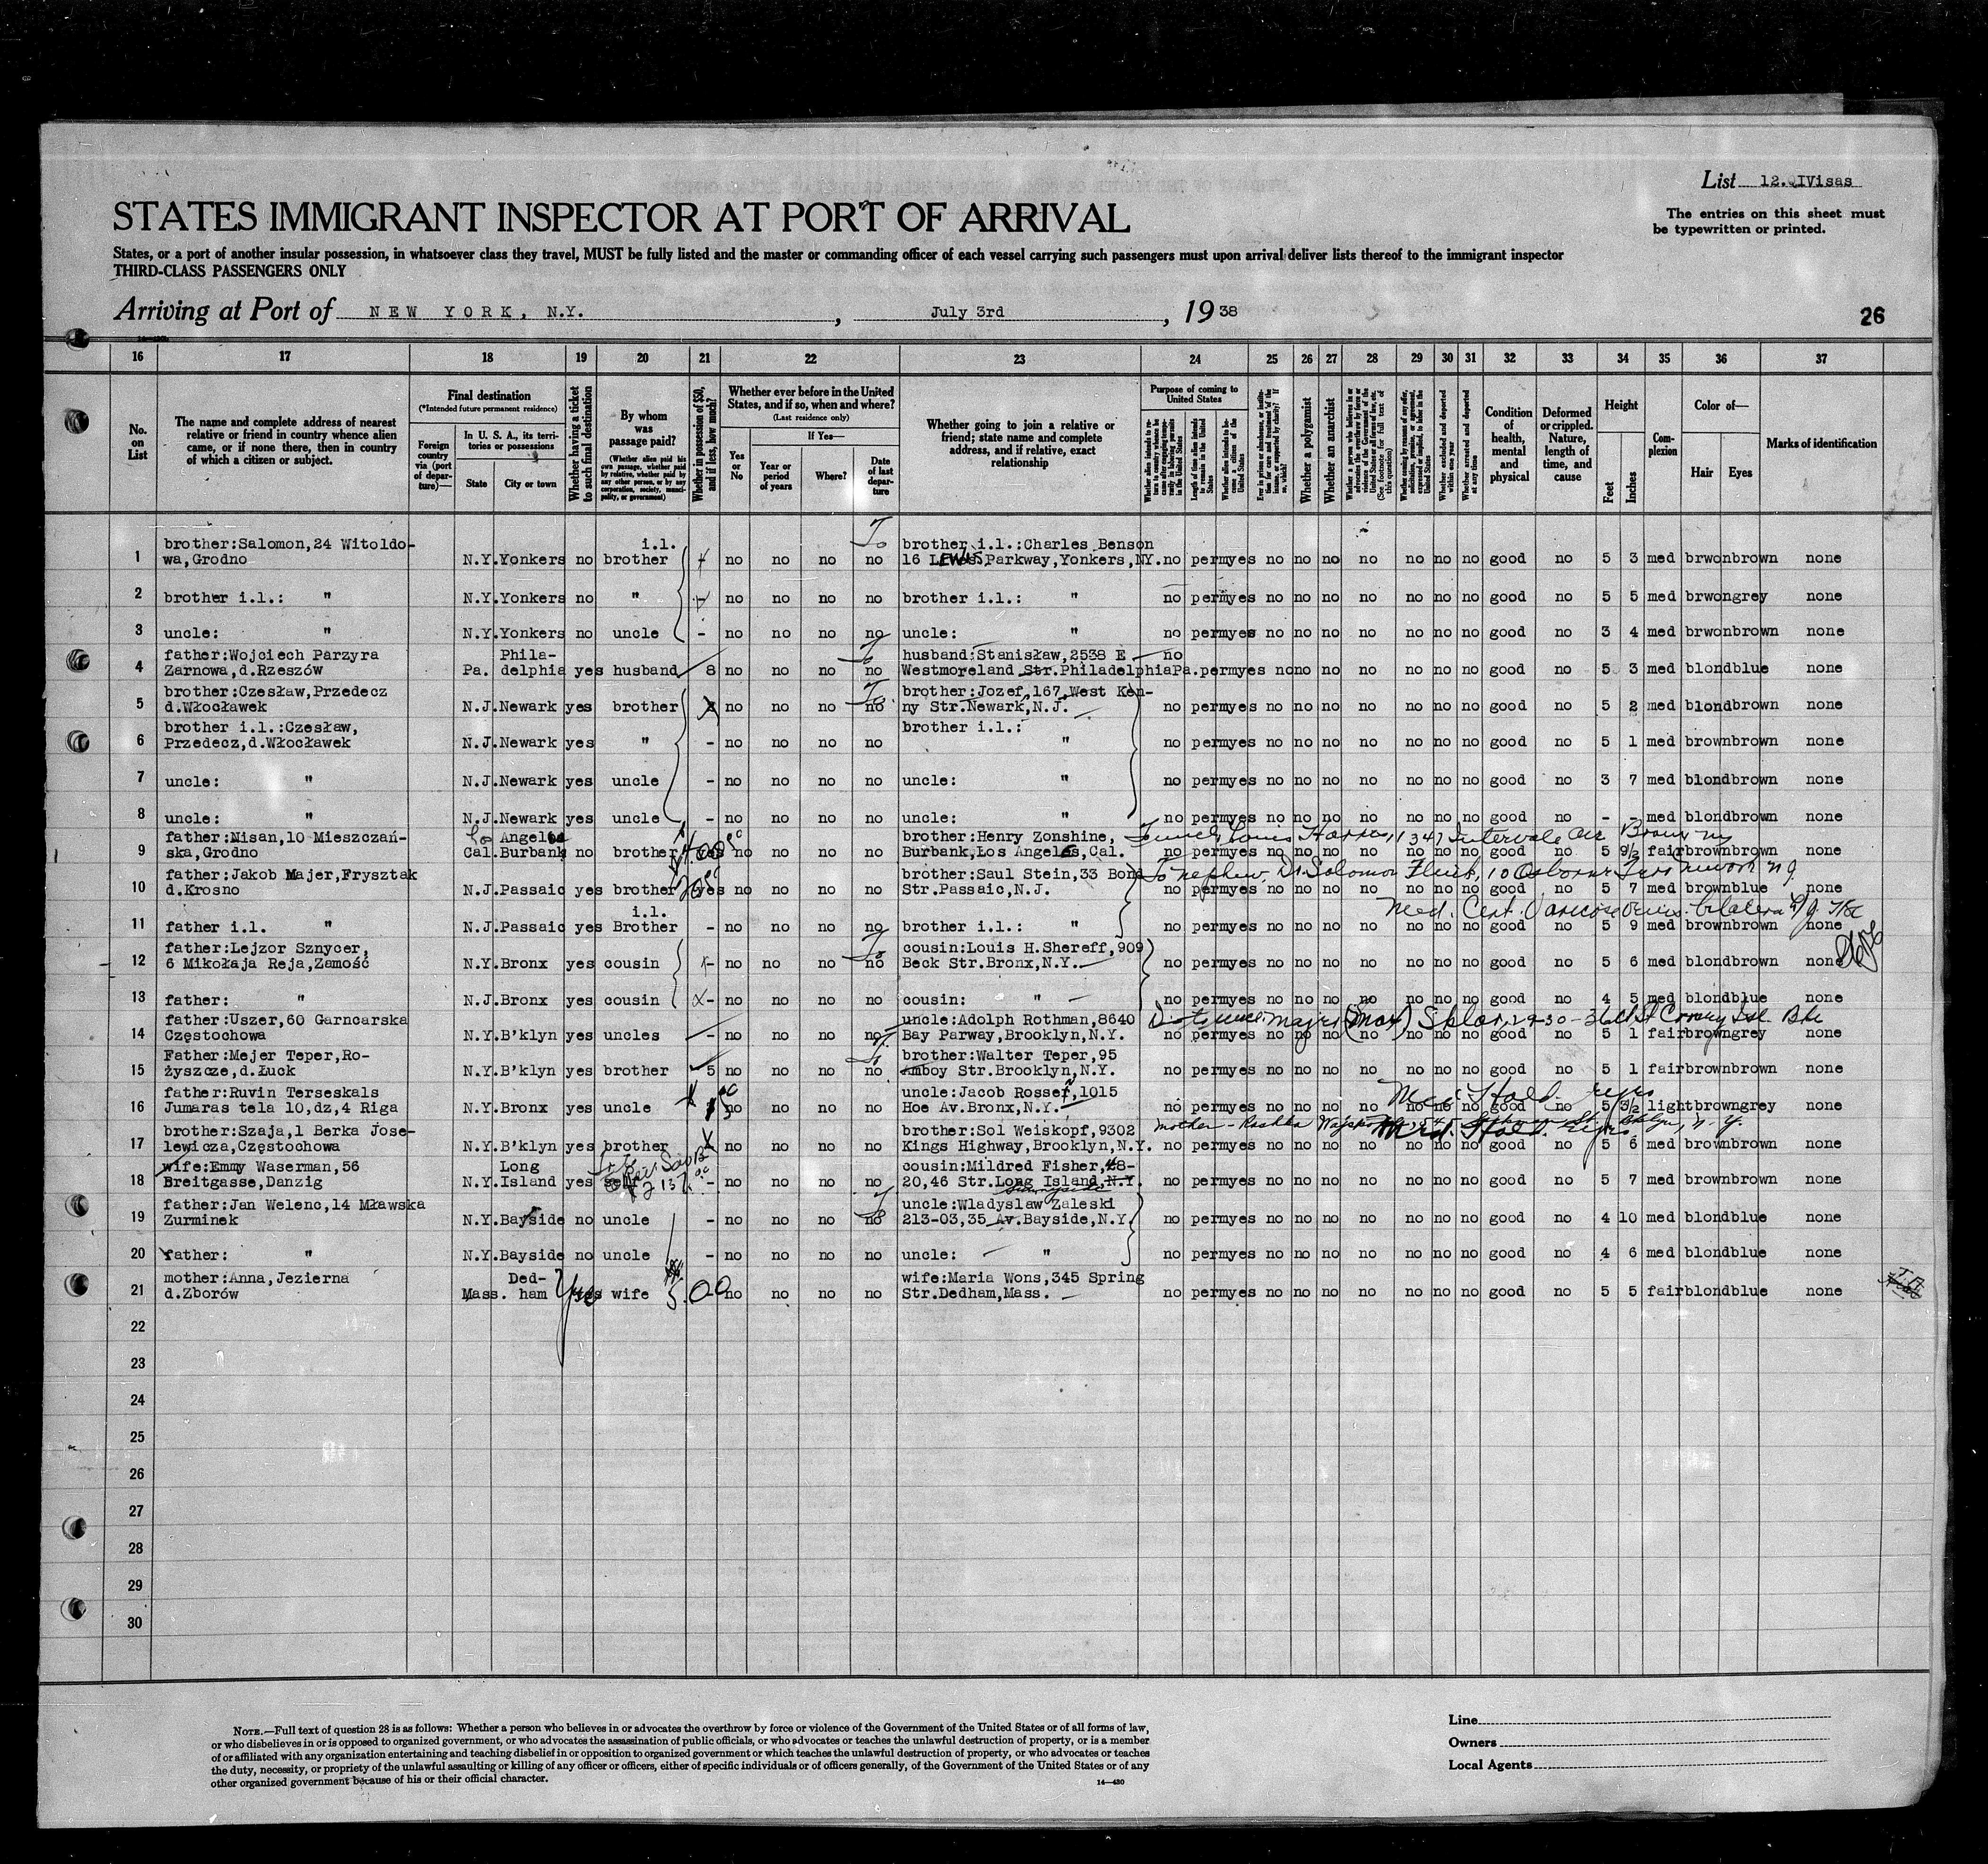 List 12. IVisas
The entries on this sheet must
be typewritten or printed.
STATES IMMIGRANT INSPECTOR AT PORT OF ARRIVAL
States, or a port of another insular possession, in whatsoever class they travel, MUST be fully listed and the master or commanding officer of each vessel carrying such passengers must upon arrival deliver lists thereof to the immigrant inspector
THIRD-CLASS PASSENGERS ONLY
Arriving at Port of NEW YORK, N.Y., July 3rd, 1938
26
16 17 18 19 20 21 22 23 24 25 26 27 28 29 30 31 32 33 34 35 36 37
No. on List
The name and complete address of nearest relative or friend in country whence alien came, or if none there, then in country of which a citizen or subject.
Final destination
(*Intended future permanent residence)
Foreign country via (port of departure)—
In U. S. A., its territories or possessions
State City or town
Whether having a ticket to such final destination
By whom was passage paid?
(Whether alien paid his own passage, whether paid by relative, whether paid by any other person, or by any corporation, society, municipality, or government)
Whether in possession of $50, and if less, how much?
Whether ever before in the United States, and if so, when and where?
(Last residence only)
Yes or No
If Yes—
Year or period of years
Where?
Date of last departure
Whether going to join a relative or friend; state name and complete address, and if relative, exact relationship
Purpose of coming to United States
Length of time alien intends to remain in the United States
Whether alien intends to become a citizen of the United States
Whether a polygamist
Whether an anarchist
Whether excluded and deported within one year
Whether arrested and deported at any time
Condition of health, mental and physical
Deformed or crippled. Nature, length of time, and cause
Height
Feet Inches
Complexion
Color of—
Hair Eyes
Marks of identification
1 brother:Salomon,24 Witoldowa,Grodno N.Y.Yonkers no i.l. brother no no no To no brother i.l.:Charles Benson 16 LEWIS Parkway,Yonkers,NY. no perm yes no no no no no no no good no 5 3 med brwon brown none
2 brother i.l.: " N.Y.Yonkers no " no no no no brother i.l.: " no perm yes no no no no no no no good no 5 5 med brwon grey none
3 uncle: " N.Y.Yonkers no uncle - no no no no uncle: " no perm yes no no no no no no no good no 3 4 med brwon brown none
4 father:Wojciech Parzyra Zarnowa,d.Rzeszów Pa. Philadelphia yes husband 8 no no no To no husband:Stanisław,2538 E Westmoreland Str.Philadelphia Pa. no perm yes no no no no no no no good no 5 3 med blond blue none
5 brother:Czesław,Przedecz d.Włocławek N.J.Newark yes brother no no no To no brother:Jozef,167,West Kenny Str.Newark,N.J. no perm yes no no no no no no no good no 5 2 med blond brown none
6 brother i.l.:Czesław, Przedecz,d.Włocławek N.J.Newark yes " - no no no no brother i.l.: " no perm yes no no no no no no no good no 5 1 med brown brown none
7 uncle: " N.J.Newark yes uncle - no no no no uncle: " no perm yes no no no no no no no good no 3 7 med blond brown none
8 uncle: " N.J.Newark yes uncle - no no no no uncle: " no perm yes no no no no no no no good no - - med blond brown none
9 father:Nisan,10 Mieszczańska,Grodno Cal. Lo Angeles Burbank no brother yes no no no no brother:Henry Zonshine, Burbank,Los Angeles,Cal. no perm yes no no no no no no no good no 5 9½ fair brown brown none
To uncle Louis Harris, 1347 Intervale Av Bronx ny
10 father:Jakob Majer,Frysztak d.Krosno N.J.Passaic yes brother yes no no no no brother:Saul Stein,33 Bond Str.Passaic,N.J. no perm yes no no no no no no no good no 5 7 med brown blue none
To nephew Dr. Solomon 10 Osborne Newark NJ
11 father i.l. " N.J.Passaic yes i.l. Brother - no no no no brother i.l.: " no perm yes no no no no no no no good no 5 9 med brown brown none
Med. Cert. Varicose veins bilateral
12 father:Lejzor Sznycer, 6 Mikołaja Reja,Zamość N.Y.Bronx yes cousin - no no no To no cousin:Louis H.Shereff,909 Beck Str.Bronx,N.Y. no perm yes no no no no no no no good no 5 6 med blond brown none
13 father: " N.J.Bronx yes cousin - no no no no cousin: " no perm yes no no no no no no no good no 4 5 med blond blue none
14 father:Uszer,60 Garncarska Częstochowa N.Y.B'klyn yes uncles - no no no no uncle:Adolph Rothman,8640 Bay Parway,Brooklyn,N.Y. no perm yes no no no no no no no good no 5 1 fair brown grey none
(Max) Sklar, 2930 - 36th St Coney Isl Bk
15 Father:Mejer Teper,Rożyszcze,d.Łuck N.Y.B'klyn yes brother 5 no no no To no brother:Walter Teper,95 Amboy Str.Brooklyn,N.Y. no perm yes no no no no no no no good no 5 1 fair brown brown none
16 father:Ruvin Terseskals Jumaras tela 10,dz,4 Riga N.Y.Bronx yes uncle no no no no uncle:Jacob Rosset,1015 Hoe Av.Bronx,N.Y. no perm yes no no no no no no no good no 5 3½ light brown grey none
Med. Hold. eyes
17 brother:Szaja,1 Berka Joselewicza,Częstochowa N.Y.B'klyn yes brother no no no no brother:Sol Weiskopf,9302 Kings Highway,Brooklyn,N.Y. no perm yes no no no no no no no good no 5 6 med brown brown none
mother - Med. Hold. Eyes Bklyn, N.Y.
18 wife:Emmy Waserman,56 Breitgasse,Danzig N.Y. Long Island yes self - no no no no cousin:Mildred Fisher,48-20,46 Str.Long Island,N.Y. Sunnyside no perm yes no no no no no no no good no 5 7 med brown brown none
19 father:Jan Welenc,14 Mławska Zurminek N.Y.Bayside no uncle - no no no To no uncle:Wladyslaw Zaleski 213-03,35 Av.Bayside,N.Y. no perm yes no no no no no no no good no 4 10 med blond blue none
20 father: " N.Y.Bayside no uncle - no no no no uncle: " no perm yes no no no no no no no good no 4 6 med blond blue none
21 mother:Anna,Jezierna d.Zborów Mass. Dedham Yes wife 5.00 no no no no wife:Maria Wons,345 Spring Str.Dedham,Mass. no perm yes no no no no no no no good no 5 5 fair blond blue none
22
23
24
25
26
27
28
29
30
NOTE.—Full text of question 28 is as follows: Whether a person who believes in or advocates the overthrow by force or violence of the Government of the United States or of all forms of law,
or who disbelieves in or is opposed to organized government, or who advocates the assassination of public officials, or who advocates or teaches the unlawful destruction of property, or is a member
of or affiliated with any organization entertaining and teaching disbelief in or opposition to organized government or which teaches the unlawful destruction of property, or who advocates or teaches
the duty, necessity, or propriety of the unlawful assaulting or killing of any officer or officers, either of specific individuals or of officers generally, of the Government of the United States or of any
other organized government because of his or their official character.
14—430
Line
Owners
Local Agents